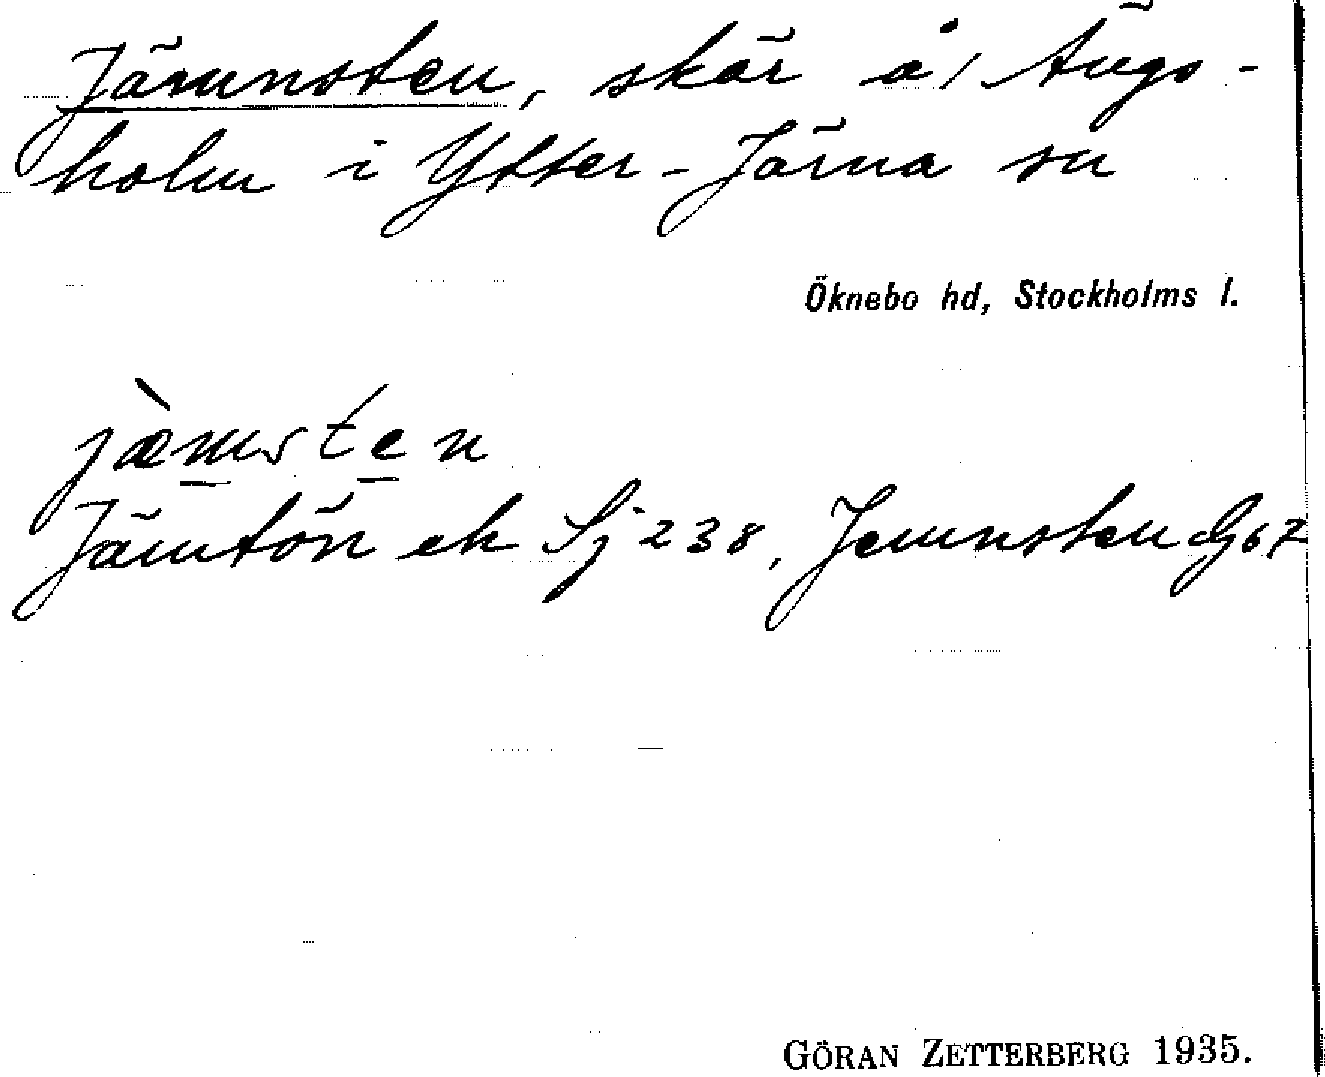 Jämnsten, skär å/ Ängs-
holm i Ytter-Järna sn
Öknebo hd, Stockholms l.
jæmsten
Jämtön ek Sj 238, Jemnsten G67
GÖRAN ZETTERBERG 1935.